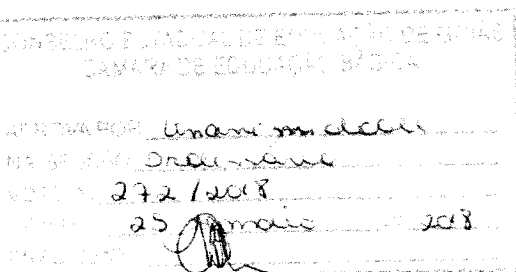 CONSELHO ESTADUAL DE EDUCAÇÃO DE GOIÁS
CÂMARA DE EDUCAÇÃO BÁSICA
APROVADO POR unanimidade
NA SESSÃO Ordinária
272/2018
25 maio 2018